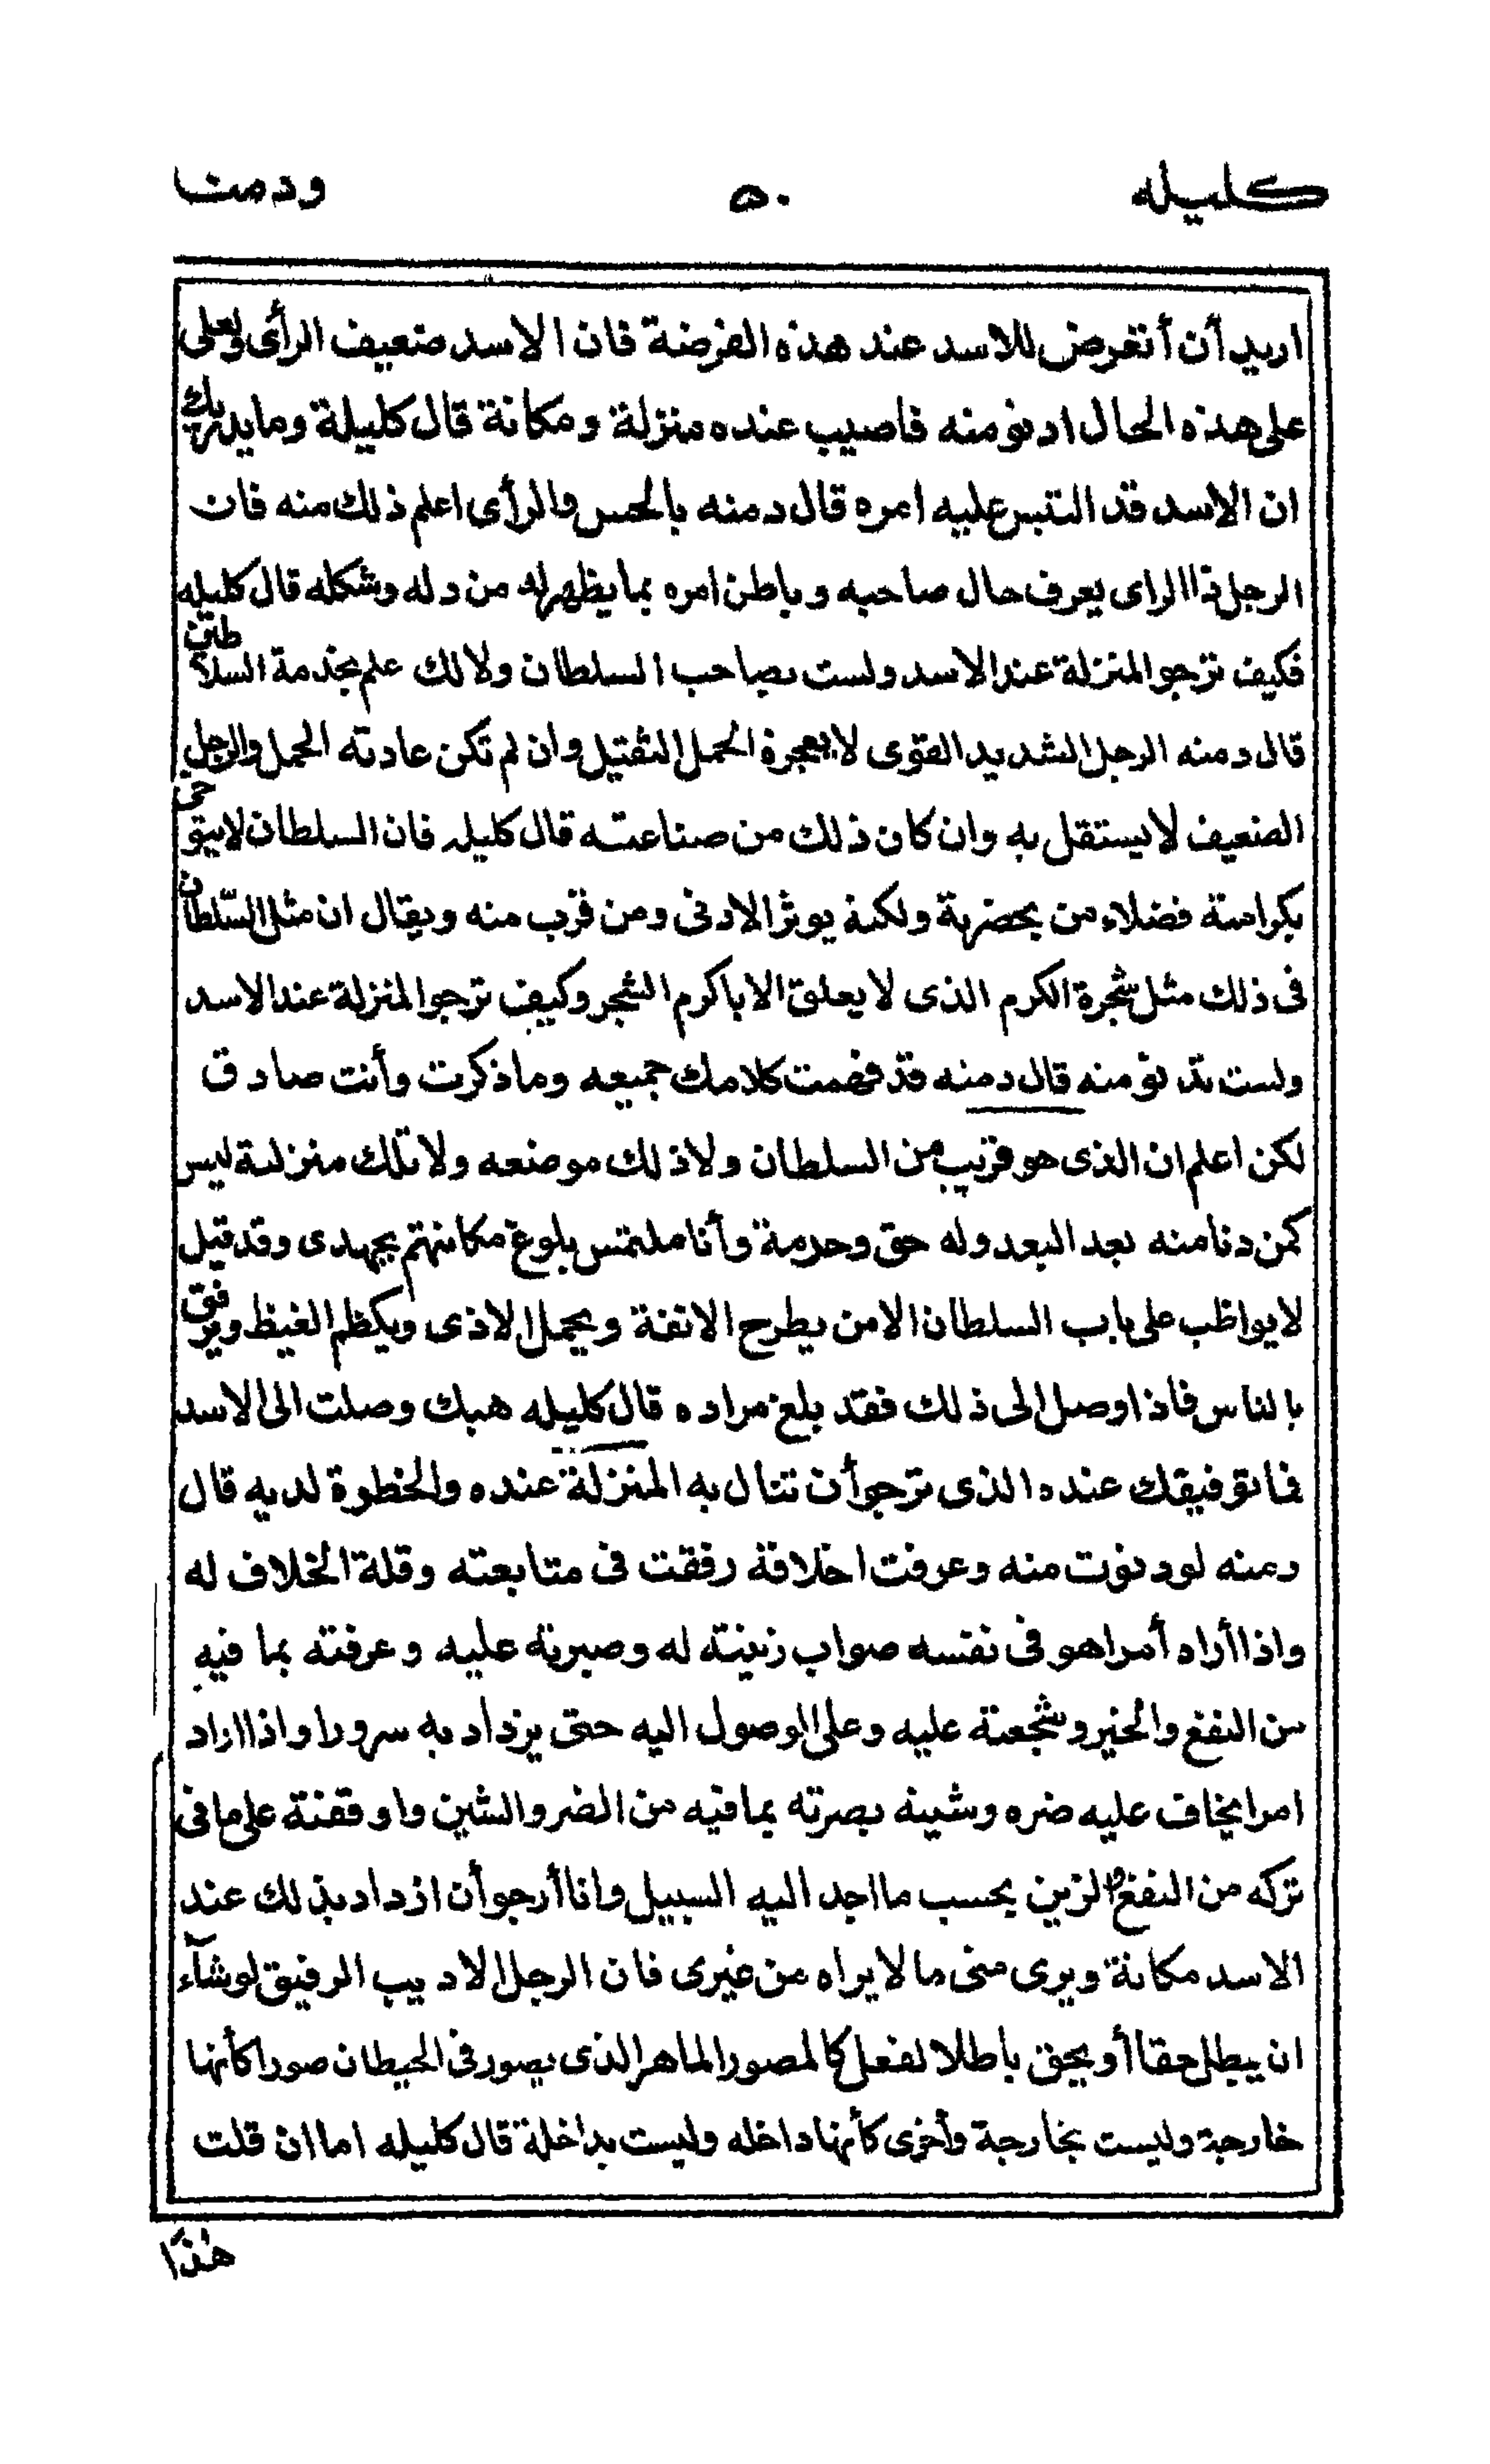 كليله ٥٠ ودمنه
اريد أن أتعرض للاسد عند هذه الفرصة فان الاسد ضعيف الرأى ولعلى
على هذه الحال ادنو منه فاصيب عنده منزلة ومكانة قال كليلة وما يدريك
ان الاسد قد التبس عليه امره قال دمنه بالحس والرأى اعلم ذلك منه فان
الرجل ذا الراى يعرف حال صاحبه وباطن امره بما يظهر له من دله وشكله قال كليله
فكيف ترجو المنزلة عند الاسد ولست بصاحب السلطان ولا لك علم بخدمة السلاطين
قال دمنه الرجل الشديد القوى لا يعجزه الحمل الثقيل وان لم تكن عادته الحمل والرجل
الضعيف لا يستقل به وان كان ذلك من صناعته قال كليله فان السلطان لا يتوخى
بكرامته فضلاء من بحضرته ولكنه يوثر الادنى ومن قرب منه ويقال ان مثل السّلطان
فى ذلك مثل شجرة الكرم الذى لا يعلق الا باكرم الشجر وكيف ترجو المنزلة عند الاسد
ولست تدنو منه قال دمنه قد فهمت كلامك جميعه وما ذكرت وأنت صادق
لكن اعلم ان الذى هو قريب من السلطان ولا ذلك موضعه ولا تلك منزلته ليس
كمن دنا منه بعد البعد وله حق وحرمة وأنا ملتمس بلوغ مكانتهم بجهدى وقد قيل
لا يواظب على باب السلطان الا من يطرح الانفة ويحمل الاذى ويكظم الغيظ ويرفق
بالناس فاذا وصل الى ذلك فقد بلغ مراده قال كليله هبك وصلت الى الاسد
فما توفيقك عنده الذى ترجو أن تنال به المنزلة عنده والخطوة لديه قال
دمنه لو دنوت منه وعرفت اخلاقه رفقت فى متابعته وقلة الخلاف له
واذا أراد أمرا هو فى نفسه صواب زينته له وصبرته عليه وعرفته بما فيه
من النفع والخير وشجعته عليه وعلى الوصول اليه حتى يزداد به سرورا واذا اراد
امرا يخاف عليه ضره وشينه بصرته بما فيه من الضر والشين واوقفته على ما فى
تركه من النفع والزين بحسب ما اجد اليه السبيل وانا أرجو أن ازداد بذلك عند
الاسد مكانة ويرى منى ما لا يراه من غيرى فان الرجل الاديب الرفيق لو شآء
ان يبطل حقا أو يحق باطلا لفعل كالمصور الماهر الذى يصور فى الحيطان صورا كأنها
خارجة وليست بخارجة وأخرى كأنها داخله وليست بداخلة قال كليله اما ان قلت
هٰذا